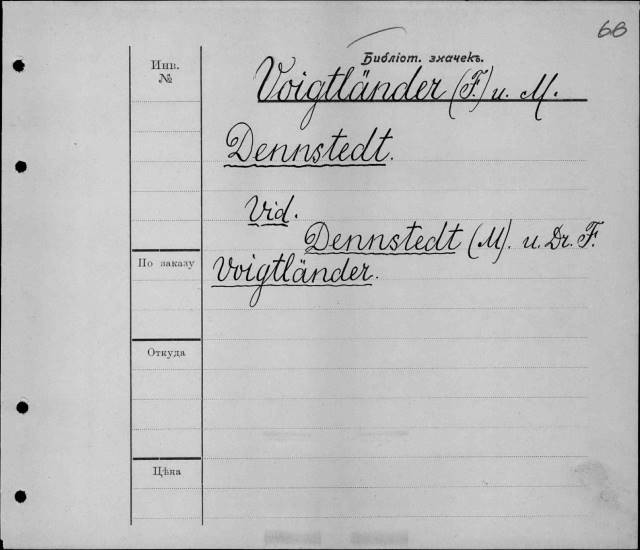 68
Библіот. значекъ.
Инв.
№
Voigtländer (F.) u. M.
Dennstedt.
Vid.
Dennstedt (M). u. Dr. F.
Voigtländer.
По заказу
Откуда
Цѣна